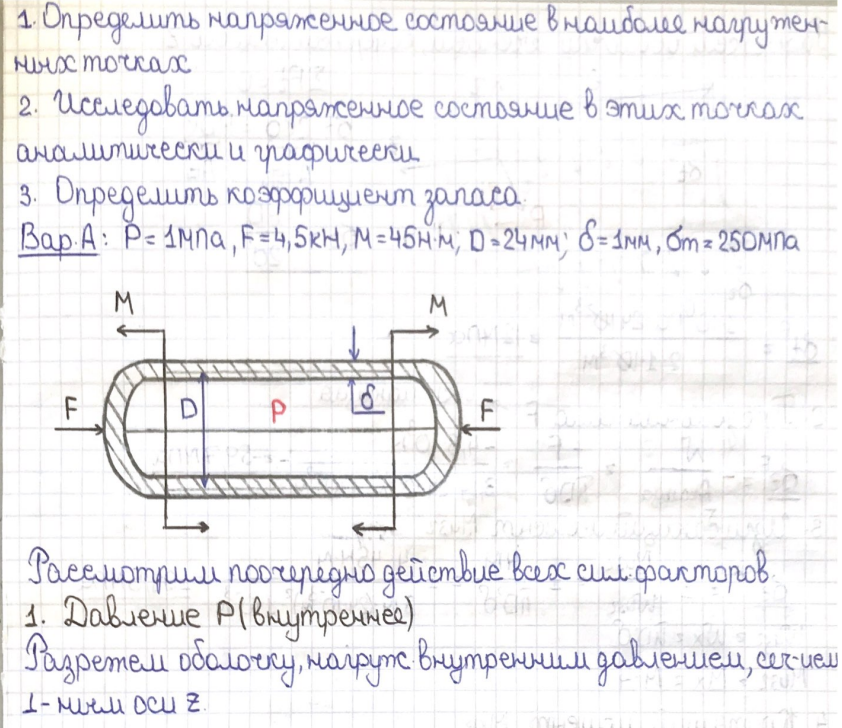 1. Определить напряженное состояние в наиболее нагружен-
нных точках
2. Исследовать напряженное состояние в этих точках
аналитически и графически
3. Определить коэффициент запаса.
Вар.А: P=1МПа, F=4,5кН, М=45Н·м; D=24мм; δ=1мм, σт=250МПа
M M
F D P δ F
Рассмотрим поочередно действие всех сил.факторов.
1. Давление P(внутреннее)
Разрежем оболочку, нагруж. внутренним давлением, сеч-ием
⊥-ным оси z.